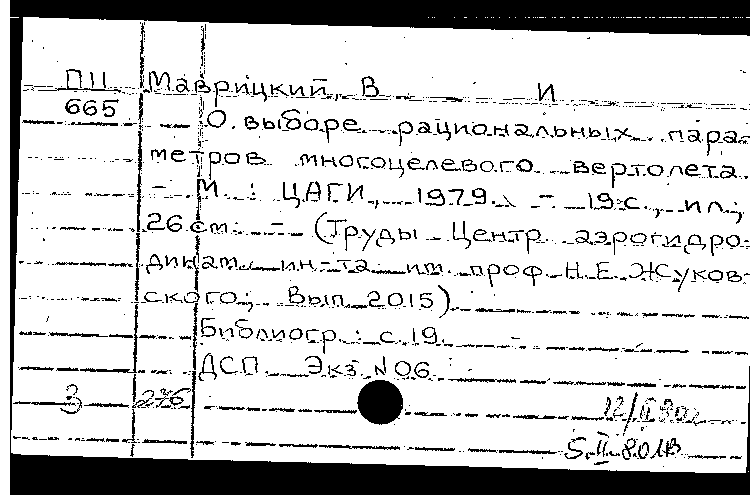 П11 Маврицкий, В И
665 О выборе рациональных пара-
метров многоцелевого вертолета.
- М.: ЦАГИ, 1979. - 19 с., ил.;
26 см. - (Труды Центр аэрогидро-
динам. ин-та им. проф. Н.Е.Жуков-
ского; Вып 2015)
Библиогр.: с.19.
ДСП. Экз N 06
3 276
5.II.80